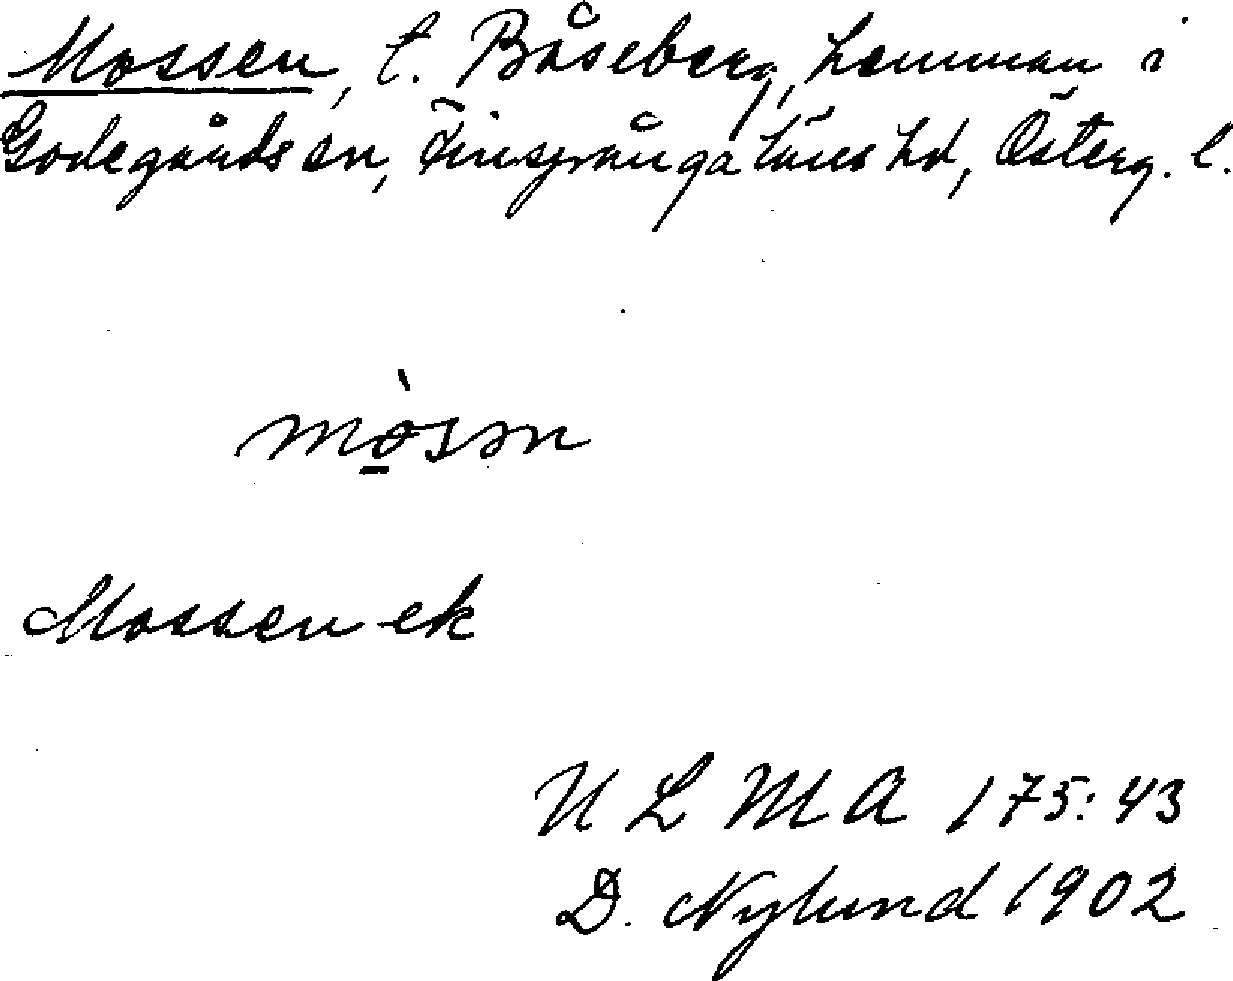 Mossen, t. Båseberg, hemman i
Godegårds sn, Finspånga läns hd, Österg. l.
mò̱sən
Mossen ek
U L M A 175:43
D. Nylund 1902